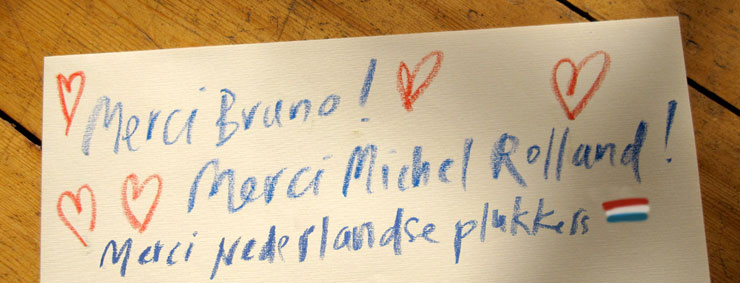 Merci Bruno!
Merci Michel Rolland!
Merci Nederlandse plukkers